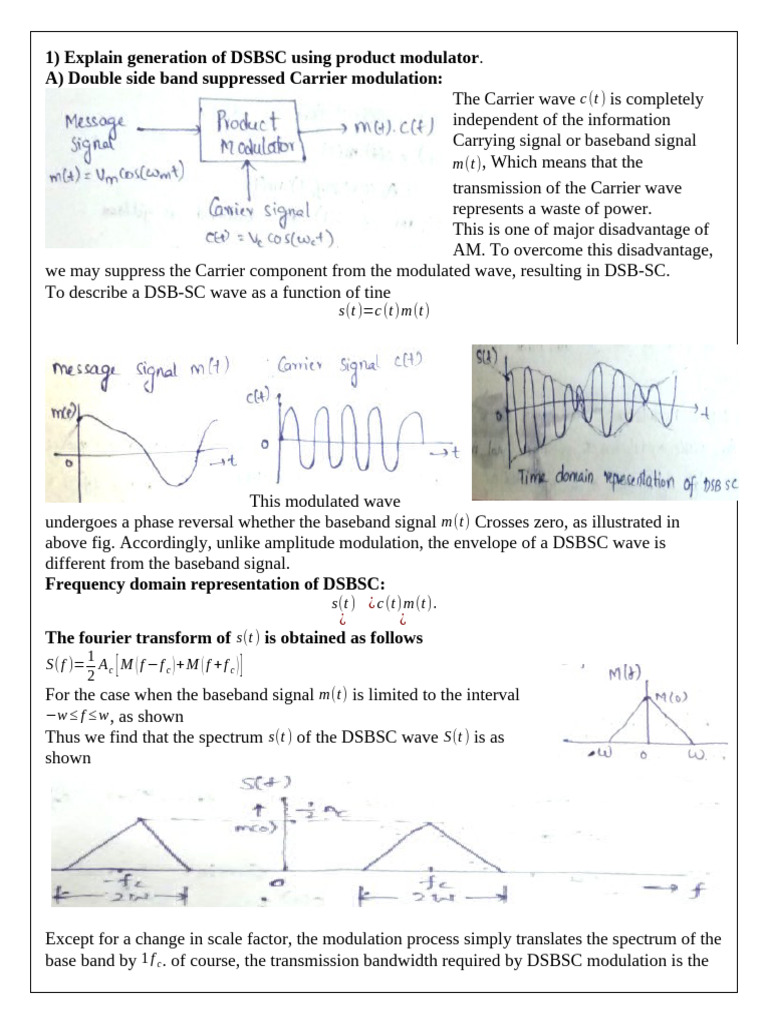 1) Explain generation of DSBSC using product modulator.
A) Double side band suppressed Carrier modulation:
Message Signal
m(t) = Vm cos(ωmt)
Product Modulator
m(t).c(t)
Carrier signal
c(t) = Vc cos(ωct)
The Carrier wave c(t) is completely
independent of the information
Carrying signal or baseband signal
m(t), Which means that the
transmission of the Carrier wave
represents a waste of power.
This is one of major disadvantage of
AM. To overcome this disadvantage,
we may suppress the Carrier component from the modulated wave, resulting in DSB-SC.
To describe a DSB-SC wave as a function of tine
s(t)=c(t)m(t)
message signal m(t)
m(t)
0
t
Carrier signal c(t)
c(t)
0
t
s(t)
0
t
Time domain represcntation of DSBSC
This modulated wave
undergoes a phase reversal whether the baseband signal m(t) Crosses zero, as illustrated in
above fig. Accordingly, unlike amplitude modulation, the envelope of a DSBSC wave is
different from the baseband signal.
Frequency domain representation of DSBSC:
s(t) ¿c(t)m(t).
¿ ¿
The fourier transform of s(t) is obtained as follows
S(f)=1/2 Ac[M(f−fc)+M(f+fc)]
For the case when the baseband signal m(t) is limited to the interval
−w≤f≤w, as shown
Thus we find that the spectrum s(t) of the DSBSC wave S(t) is as
shown
M(f)
M(0)
-W 0 W
S(f)
1/2 Ac
m(0)
-fc 0 fc f
2W 2W
Except for a change in scale factor, the modulation process simply translates the spectrum of the
base band by 1fc. of course, the transmission bandwidth required by DSBSC modulation is the